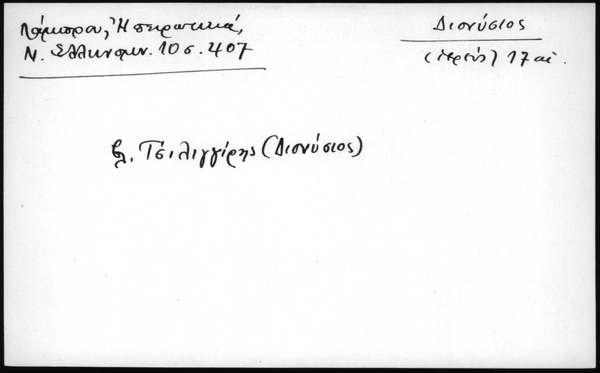 Λάμπρου, Ἠπειρωτικά,
Ν. Ἑλληνομν. 10 σ. 407
Διονύσιος
(ἱερεύς) 17 αἰ.
βλ. Τσιλιγγίρης (Διονύσιος)